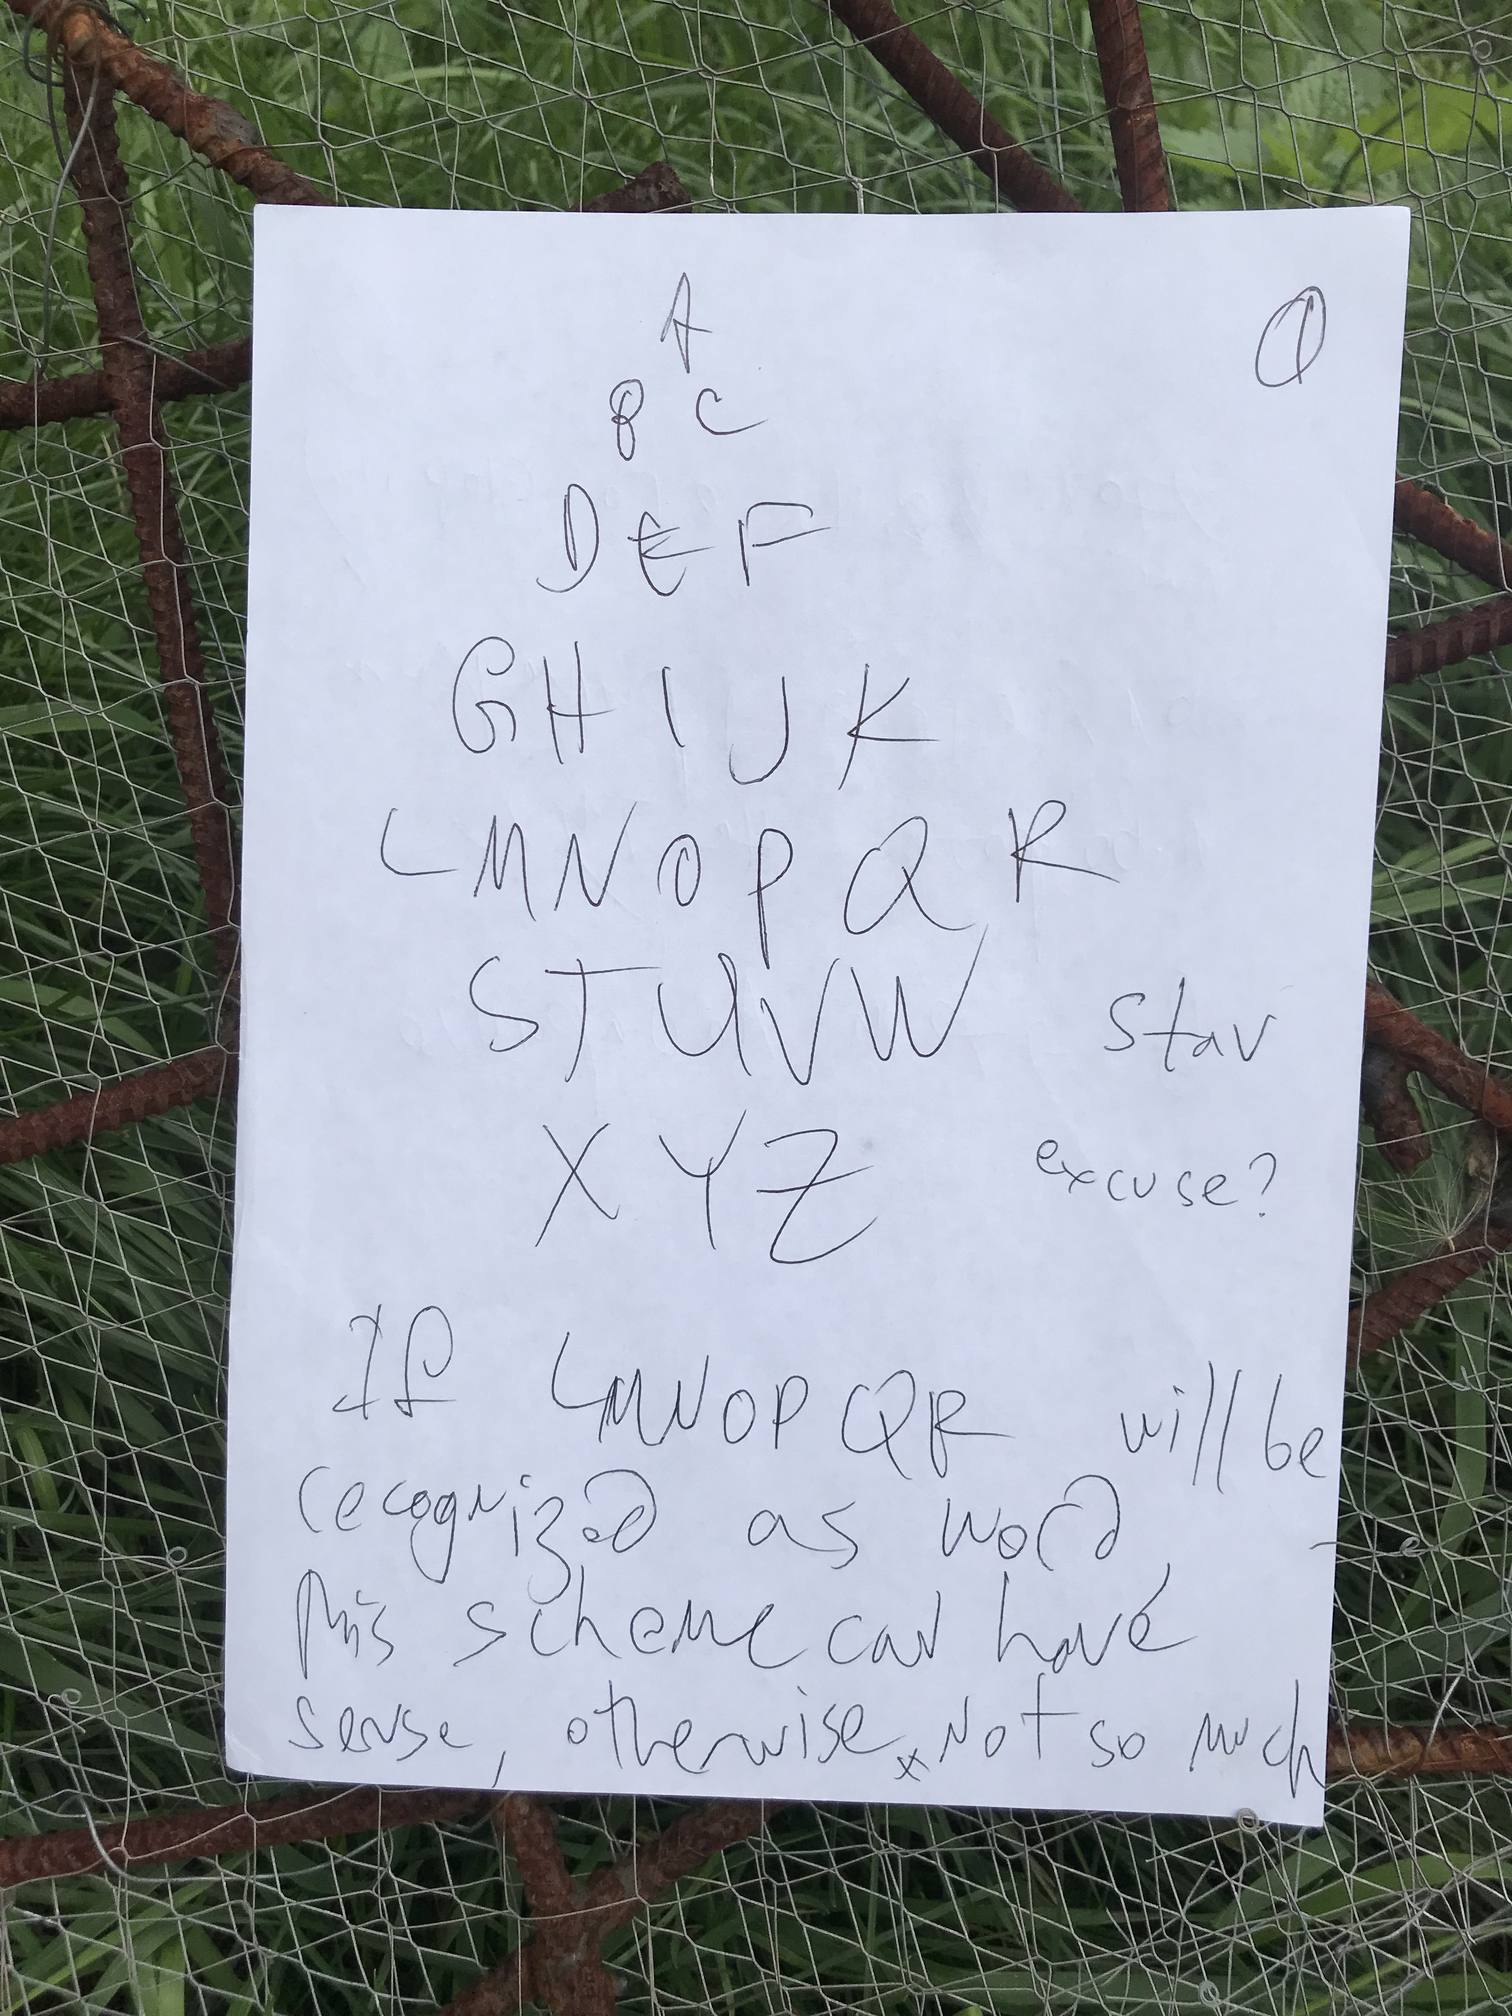 A
①
B C
D E F
G H I J K
L M N O P Q R
S T U V W
stav
X Y Z
excuse?
If LMNOPQR will be
recognized as word,
this scheme can have
sense, otherwise, not so much